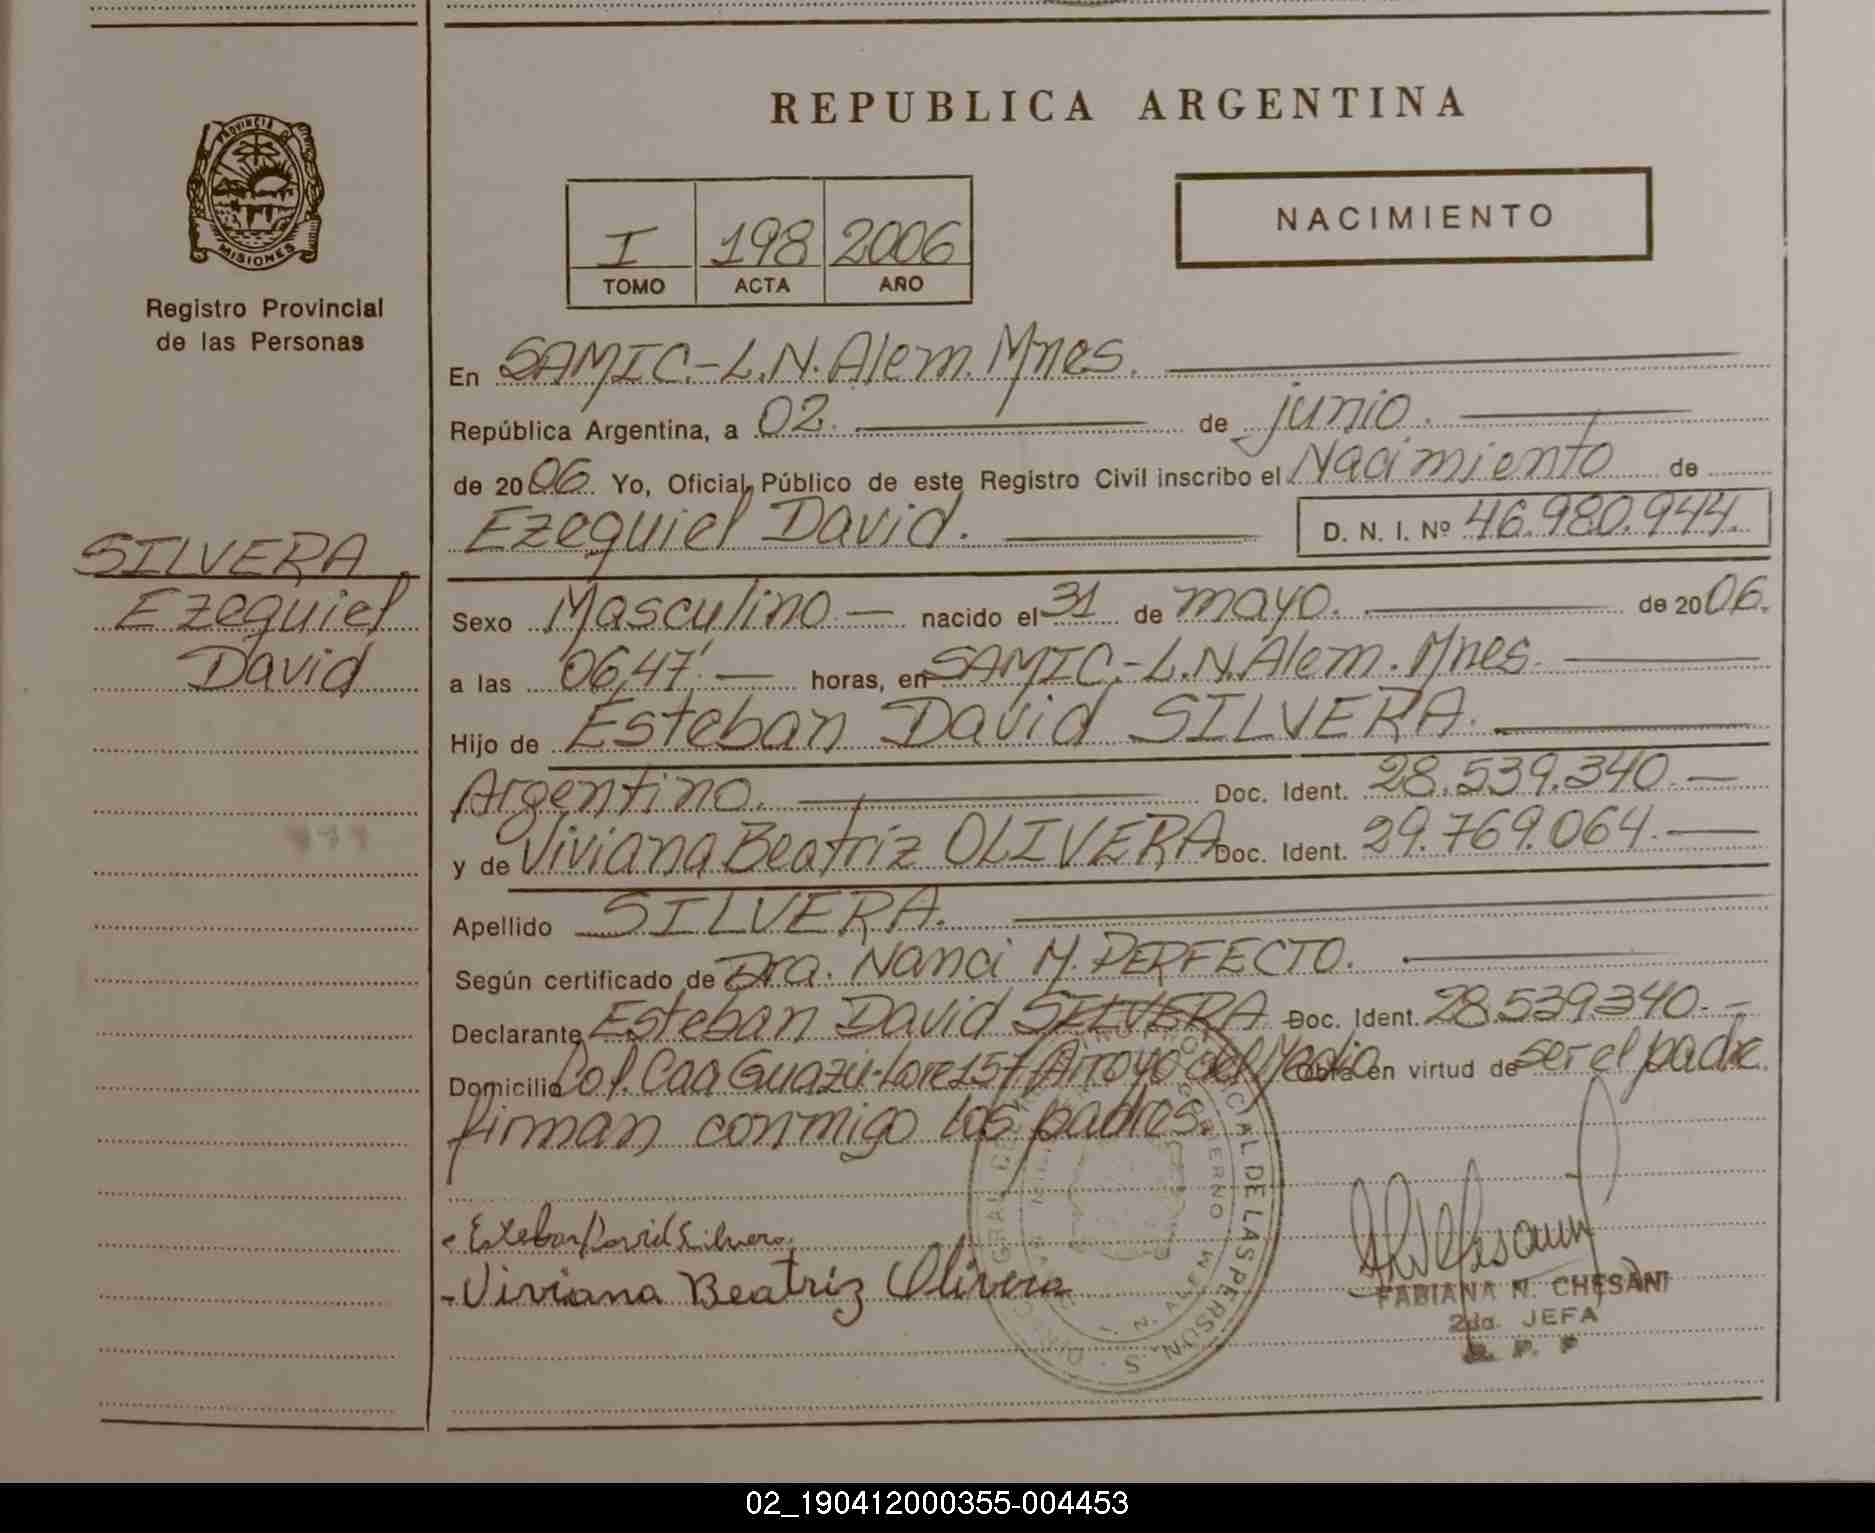 REPUBLICA ARGENTINA
PROVINCIA D
MISIONES
Registro Provincial
de las Personas
SILVERA
Ezequiel
David
I 198 2006
TOMO ACTA AÑO
NACIMIENTO
En SAMIC.-L.N.Alem.Mnes.
República Argentina, a 02. de junio.
de 2006. Yo, Oficial Público de este Registro Civil inscribo el Nacimiento de
Ezequiel David. D. N. I. Nº 46.980.944.
Sexo Masculino — nacido el 31 de mayo. de 2006.
a las 06,47'. — horas, en SAMIC.-L.N.Alem.Mnes.
Hijo de Esteban David SILVERA.
Argentino. Doc. Ident. 28.539.340.—
y de Viviana Beatriz OLIVERA Doc. Ident. 29.769.064.—
Apellido SILVERA.
Según certificado de Dra. Nanci M. PERFECTO.
Declarante Esteban David SILVERA Doc. Ident. 28.539.340.-
Domicilio Col. Caa Guazú-Lote 157 Arroyo del Medio Obra en virtud de ser el padre.
firman conmigo los padres.
Esteban David Silvera
-Viviana Beatriz Olivera
FABIANA N. CHESANI
2da. JEFA
02_190412000355-004453